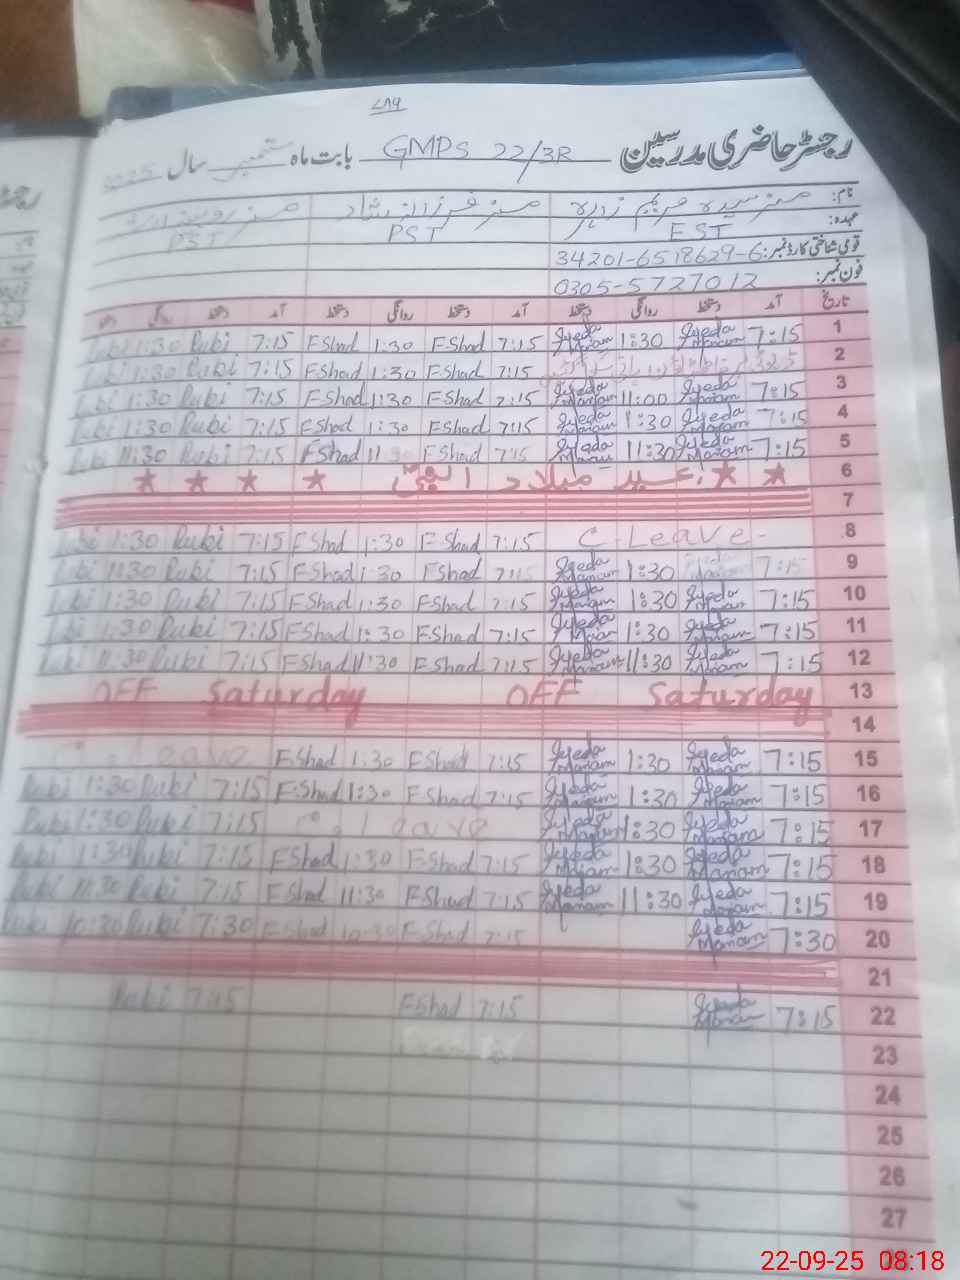 ۷۸۶
رجسٹر حاضری مدرسین GMPS 22/3R بابت ماہ ستمبر سال 2025
نام: مسز سیدہ مریم زہرہ مسز فرزانہ رشاد مسز روبینہ
عہدہ: EST PST PST
قومی شناختی کارڈ نمبر: 34201-6518629-6
فون نمبر: 0305-5727012
تاریخ آمد دستخط روانگی دستخط آمد دستخط روانگی دستخط آمد دستخط روانگی دستخط
1:30 Rubi 7:15 F.Shad 1:30 F.Shad 7:15 Syeda Manam 1:30 Syeda Manam 7:15 1
1:30 Rubi 7:15 F.Shad 1:30 F.Shad 7:15 2
1:30 Rubi 7:15 F.Shad 1:30 F.Shad 7:15 Syeda Manam 11:00 Syeda Manam 7:15 3
1:30 Rubi 7:15 F.Shad 1:30 F.Shad 7:15 Syeda Manam 1:30 Syeda Manam 7:15 4
Rubi 11:30 Rubi 7:15 F.Shad F.Shad 7:15 Syeda Manam 11:30 Syeda Manam 7:15 5
عید میلاد النبیؐ 6
7
Rubi 1:30 Rubi 7:15 F.Shad 1:30 F.Shad 7:15 C-Leave- 8
Rubi 1:30 Rubi 7:15 F.Shad 1:30 F.Shad 7:15 Syeda Manam 1:30 Syeda Manam 7:15 9
Rubi 1:30 Rubi 7:15 F.Shad 1:30 F.Shad 7:15 Syeda Manam 1:30 Syeda Manam 7:15 10
Rubi 1:30 Rubi 7:15 F.Shad 1:30 F.Shad 7:15 Syeda Manam 1:30 Syeda Manam 7:15 11
Rubi 11:30 Rubi 7:15 F.Shad 11:30 F.Shad 7:15 Syeda Manam 11:30 Syeda Manam 7:15 12
OFF Saturday OFF Saturday 13
14
C. Leave F.Shad 1:30 F.Shad 7:15 Syeda Manam 1:30 Syeda Manam 7:15 15
Rubi 1:30 Rubi 7:15 F.Shad 1:30 F.Shad 7:15 Syeda Manam 1:30 Syeda Manam 7:15 16
Rubi 1:30 Rubi 7:15 C. Leave Syeda Manam 1:30 Syeda Manam 7:15 17
Rubi 1:30 Rubi 7:15 F.Shad 1:30 F.Shad 7:15 Syeda Manam 1:30 Syeda Manam 7:15 18
Rubi 11:30 Rubi 7:15 F.Shad 11:30 F.Shad 7:15 Syeda Manam 11:30 Syeda Manam 7:15 19
Rubi 10:30 Rubi 7:30 F.Shad 10:30 F.Shad 7:15 Syeda Manam 7:30 20
21
Rubi 7:15 F.Shad 7:15 Syeda Manam 7:15 22
23
24
25
26
27
22-09-25 08:18